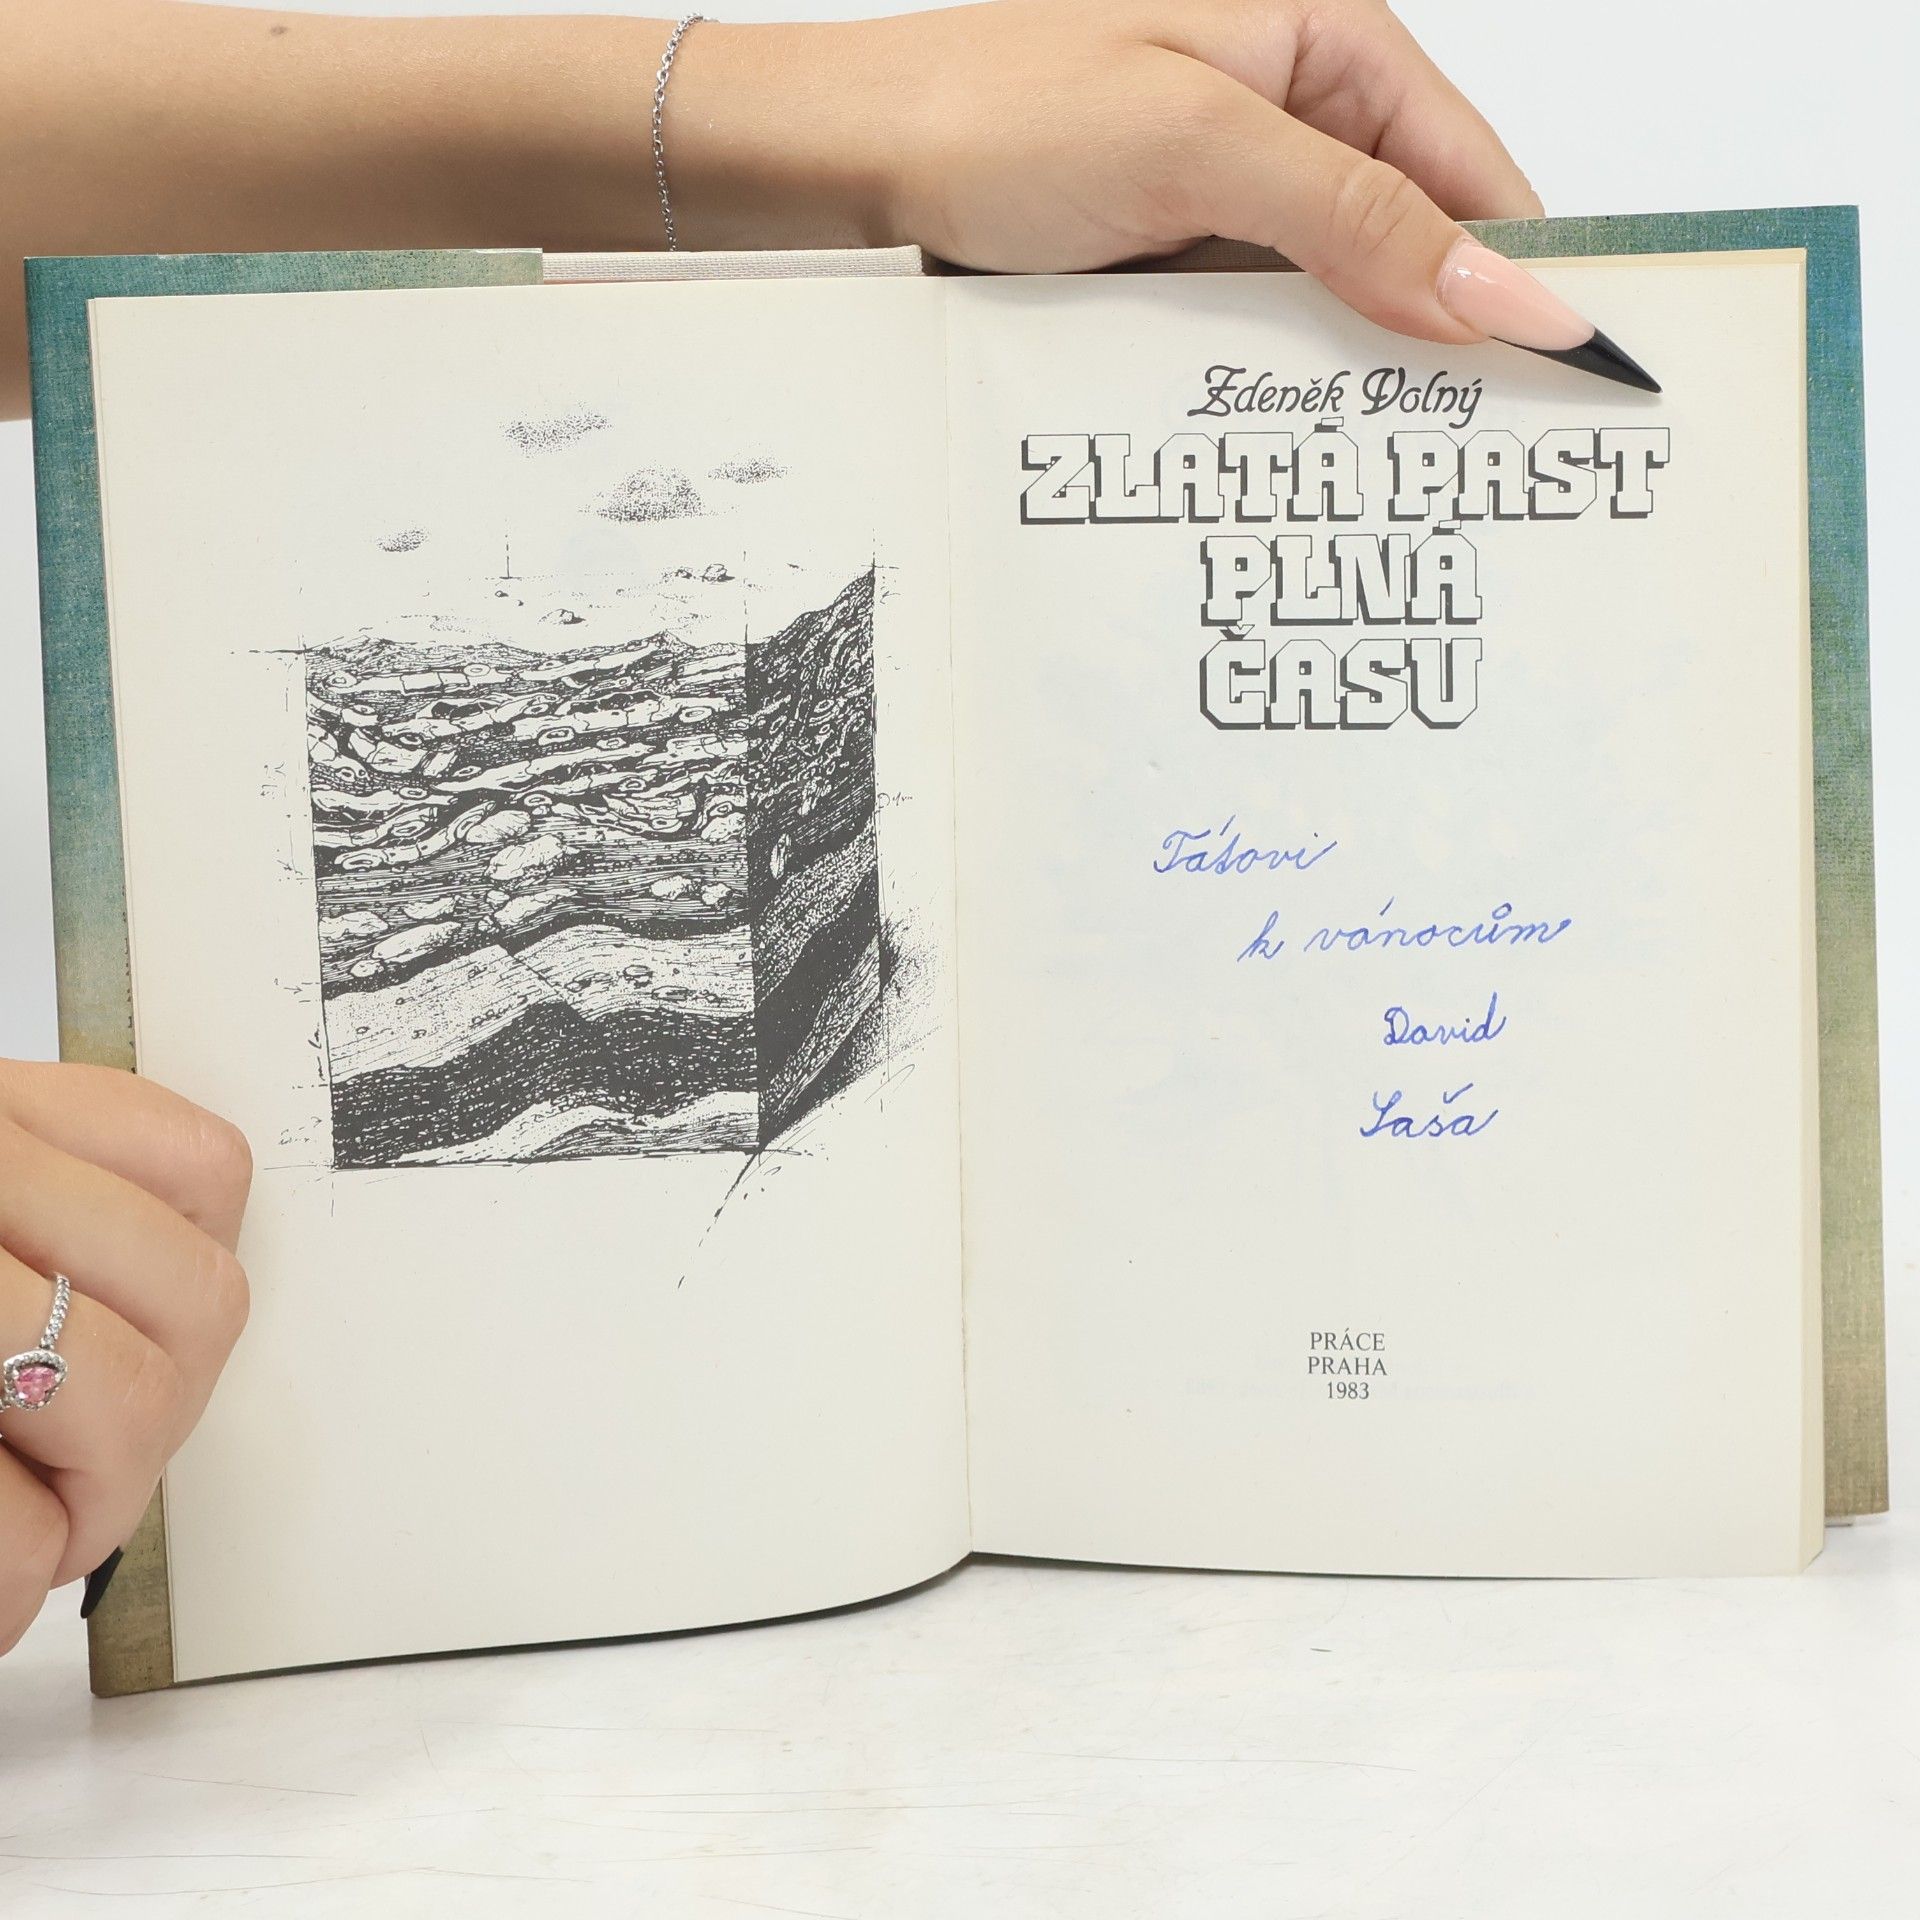 Zdeněk Volný
ZLATÁ PAST
PLNÁ
ČASU
Táťovi
k vánocům
David
Saša
PRÁCE
PRAHA
1983